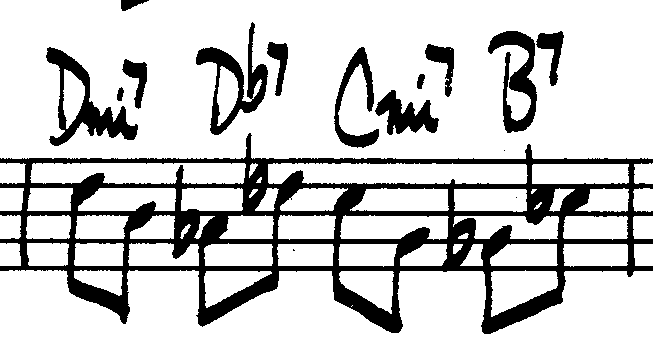 Dmi7 Db7 Cmi7 B7